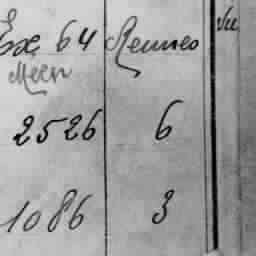 64 Rennes Vu
Meen
2526 6
1086 3